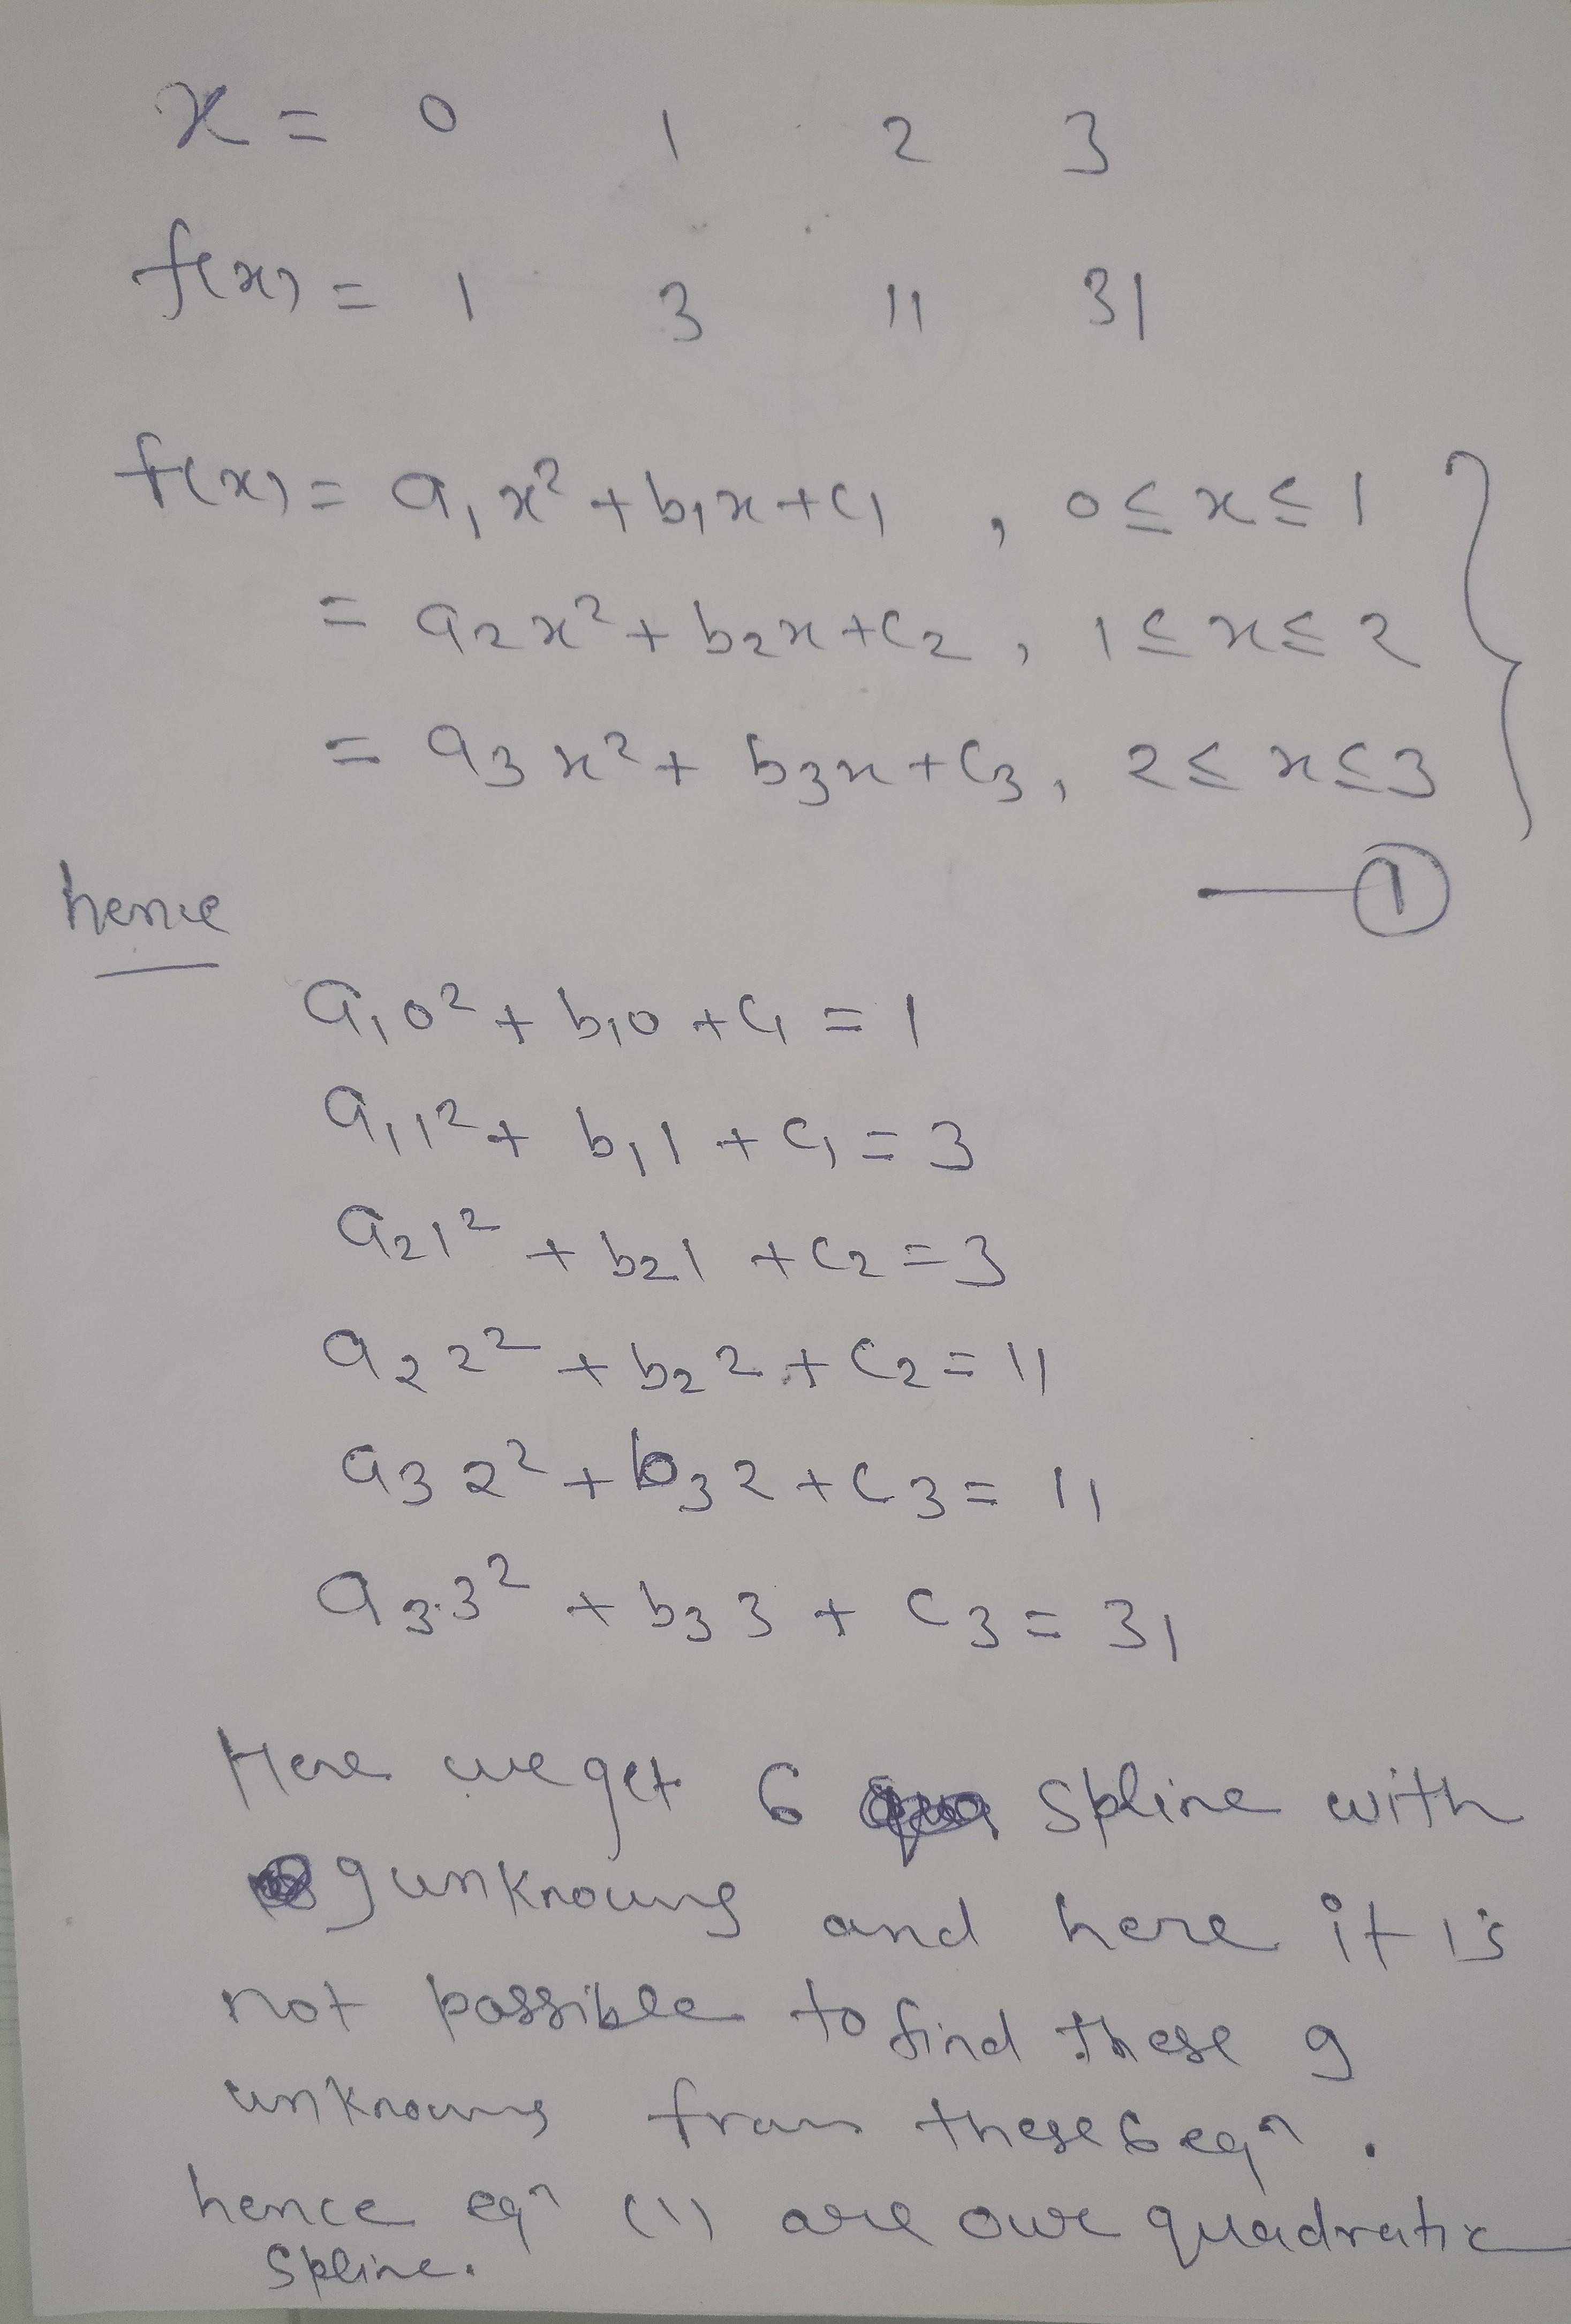 x = 0 1 2 3
f(x) = 1 3 11 31
f(x) = a₁x² + b₁x + c₁ , 0 ≤ x ≤ 1
= a₂x² + b₂x + c₂ , 1 ≤ x ≤ 2
= a₃x² + b₃x + c₃ , 2 ≤ x ≤ 3
①
hence
a₁0² + b₁0 + c₁ = 1
a₁1² + b₁1 + c₁ = 3
a₂1² + b₂1 + c₂ = 3
a₂2² + b₂2 + c₂ = 11
a₃2² + b₃2 + c₃ = 11
a₃·3² + b₃3 + c₃ = 31
Here we get 6 spline with
9 unknowns and here it is
not possible to find these 9
unknowns from these 6 eqⁿ .
hence eqⁿ (1) are our quadratic
spline.